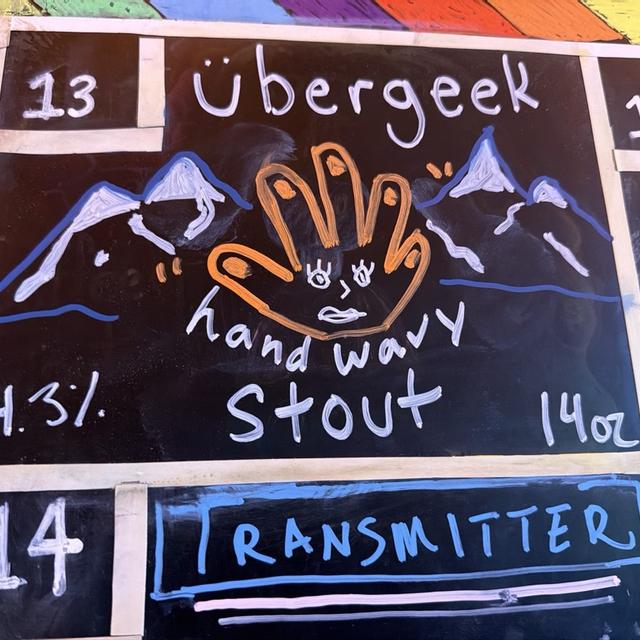 13
übergeek
hand wavy
Stout
4.3%
14oz
14
TRANSMITTER